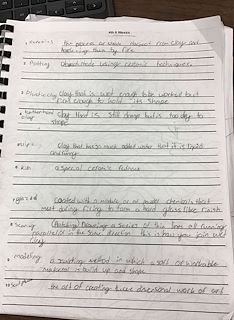 • Ceramics The process of objects from clay and
hardening them by fire.
• Potting Objects made using ceramic techniques.
• Plastic clay clay that is wet enough to be worked but
not enough to hold its shape
• leather hard clay clay that is still damp but is too dry to
shape
• slip clay that has so much water that it is liquid
and runny
• kiln a special ceramic furnace
• glazed coated with a mixture of chemicals that
melt during firing to form a hard glass like finish
• Scoring Making a series of thin lines all running
in the same direction this is how you join wet
clay
• modeling a sculpting method in which a soft or workable
material is build up and shape
• sculpture the art of creating three work of art